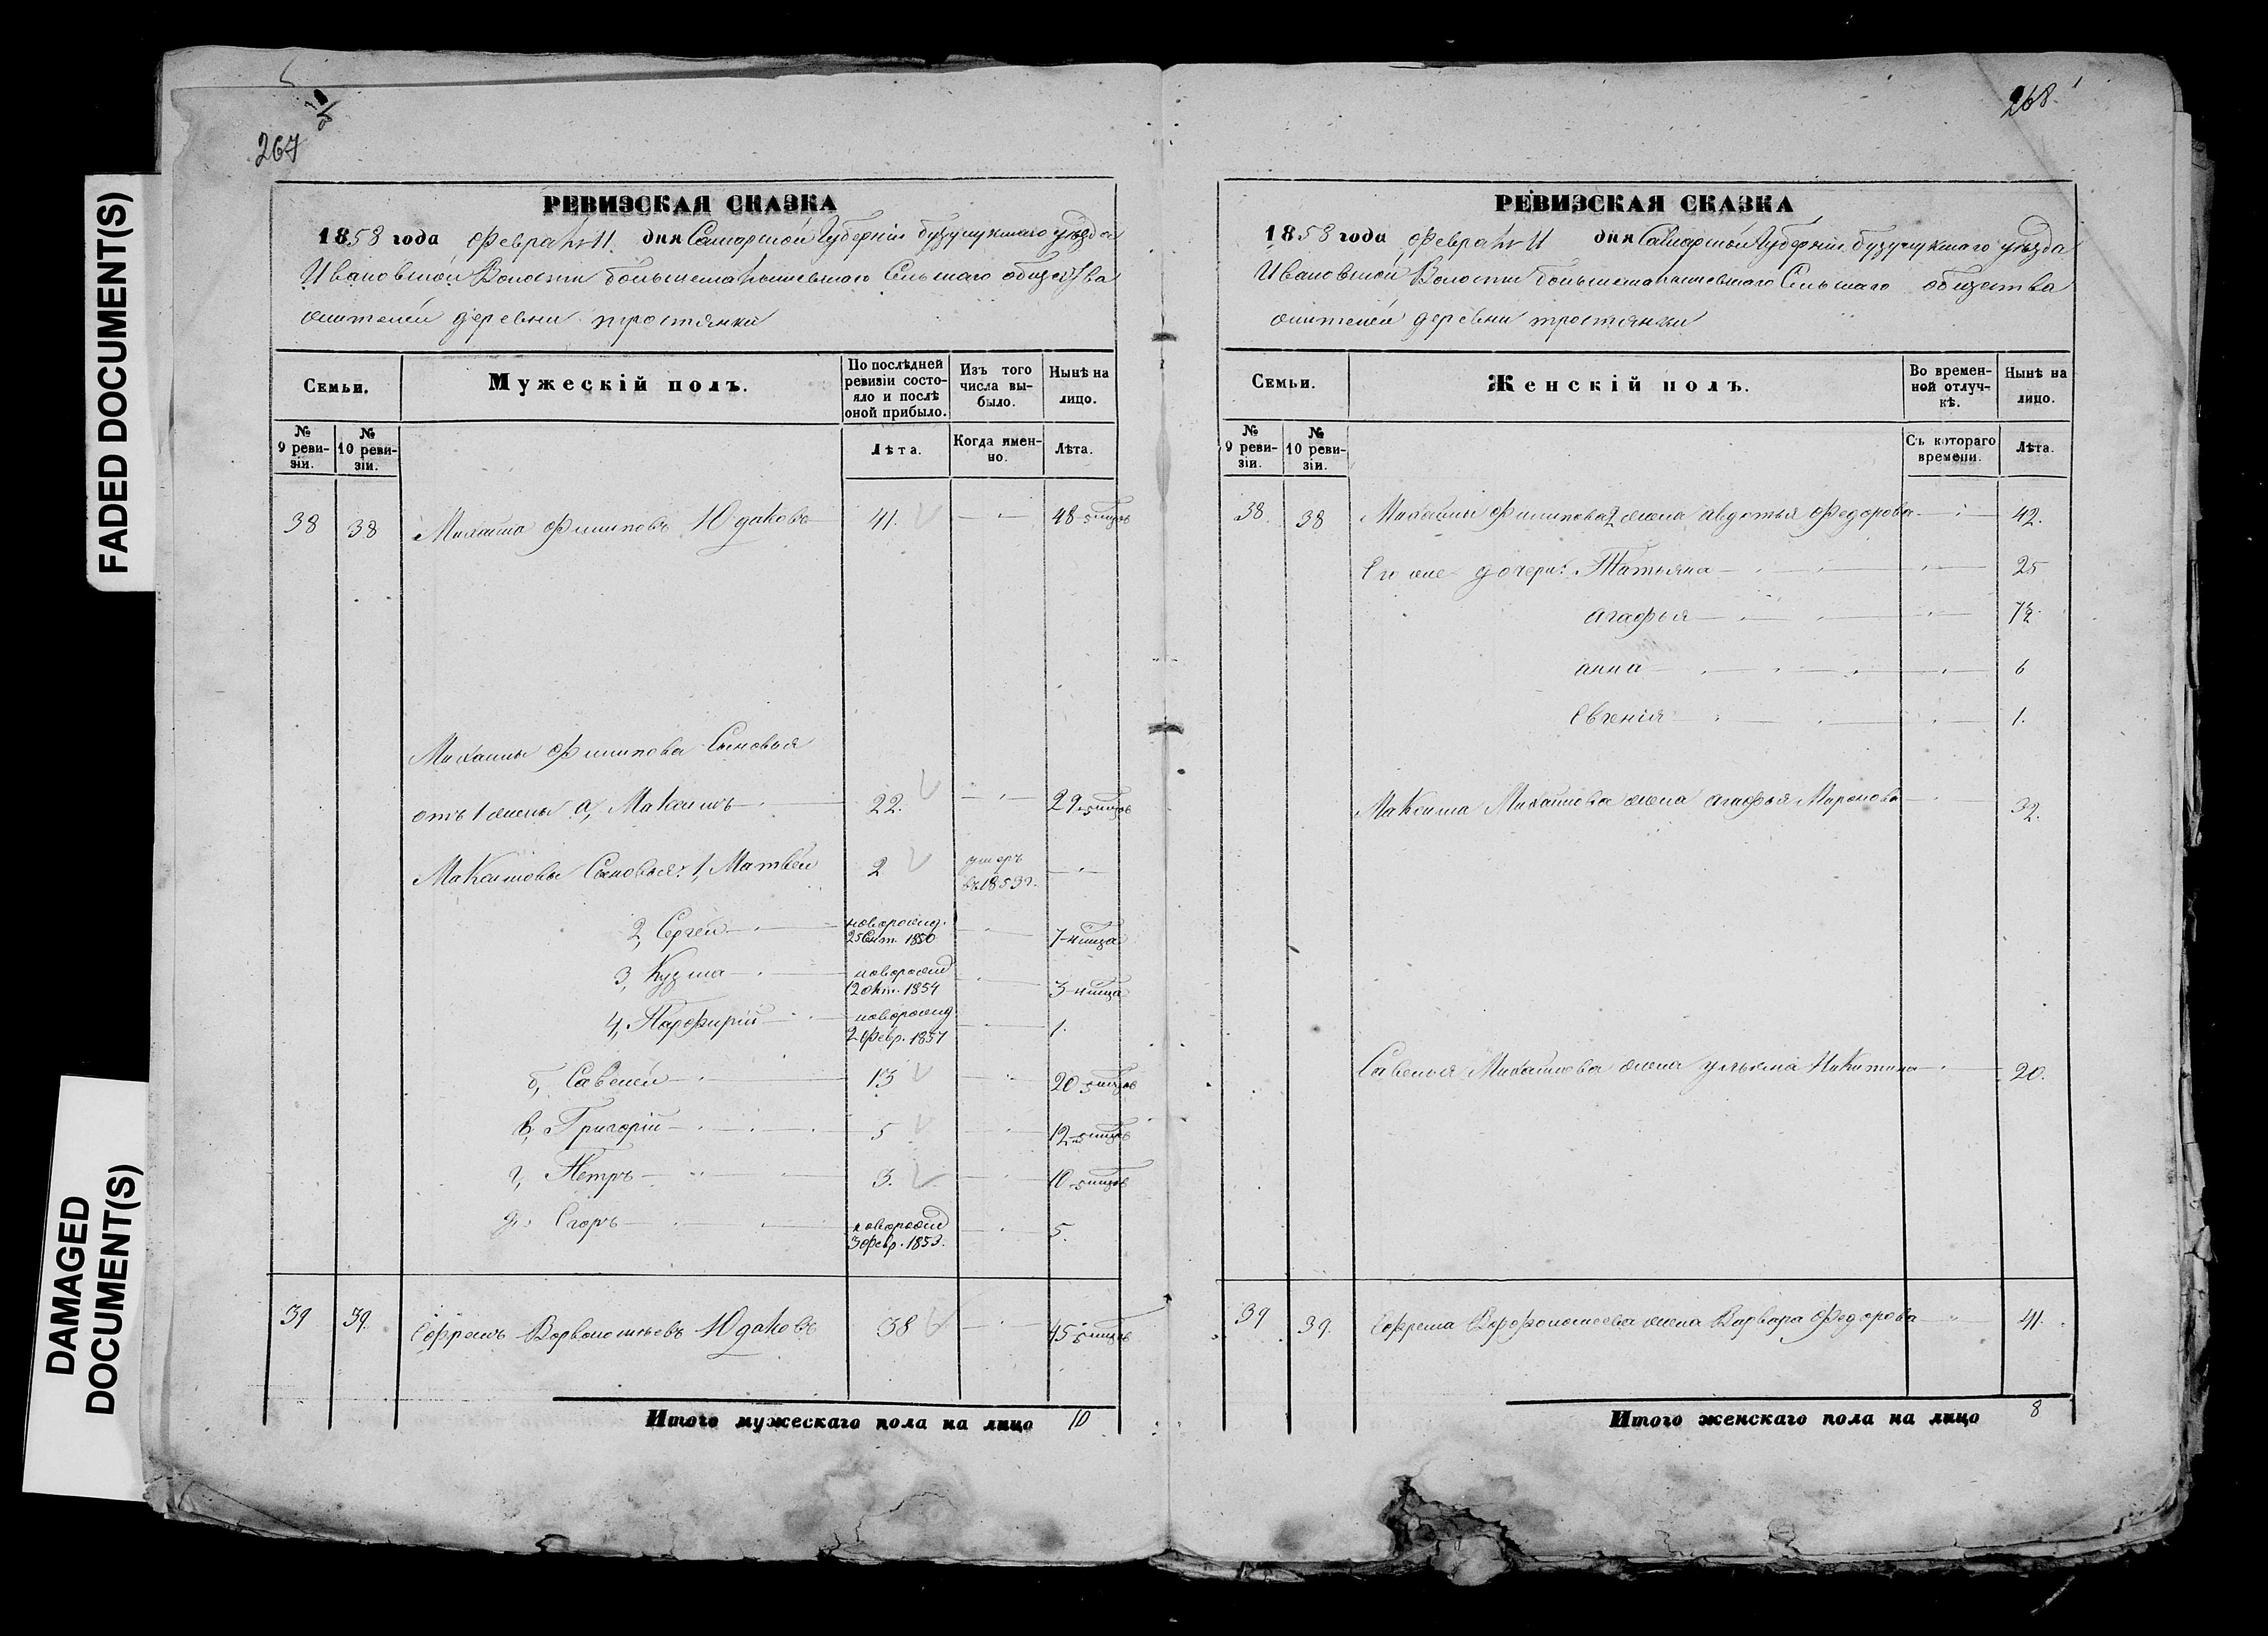 FADED DOCUMENT(S)
DAMAGED
DOCUMENT(S)
267
РЕВИЗСКАЯ СКАЗКА
1858 года Февраля 11 дня Самарской Губерніи бузулукскаго уѣзда
Ивановской Волости большемалышевскаго Сельскаго общества
жителей деревни тростянки
Семьи.
Мужескій полъ.
По послѣдней ревизіи состояло и послѣ оной прибыло.
Изъ того числа выбыло.
Нынѣ на лицо.
№ 9 ревизіи.
№ 10 ревизіи.
Лѣта.
Когда именно.
Лѣта.
38 38 Михаила Филиповъ Юдаковъ 41. 48
Михаилы Филипова Сыновья
отъ 1 жены а, Максимъ 22. 29
Максимовы Сыновья: 1, Матвей 2 умеръ въ 1853 г.
2, Сергей новорожд. 25 Сент. 1850 7
3, Кузма новорожд 12 Окт. 1854 3
4, Парфирій новорожд 2 Февр. 1857 1.
б, Савелей 13 20
в, Григорій 5 12
г, Петръ 3. 10
д, Егоръ новорожд 3 Февр. 1853. 5.
39 39. Ефремъ Варволомѣевъ Юдаковъ 38 45
Итого мужескаго пола на лицо 10
268.
РЕВИЗСКАЯ СКАЗКА
1858 года Февраля 11 дня Самарской Губерніи бузулукскаго уѣзда
Ивановской Волости большемалышевскаго Сельскаго общества
жителей деревни тростянки
Семьи.
Женскій полъ.
Во временной отлучкѣ.
Нынѣ на лицо.
№ 9 ревизіи.
№ 10 ревизіи.
Съ котораго времени.
Лѣта.
38. 38 Михаилы Филипова 2 жена авдотья Федорова 42.
Его же дочери: Татьяна 25
агафья
анна 6
Евгенія 1.
Максима Михайлова жена агафья Миронова 32.
Савелья Михайлова жена ульяна Никитина 20.
39 39. Ефрема Варфоломеева жена Варвара Федорова 41.
Итого женскаго пола на лицо 8